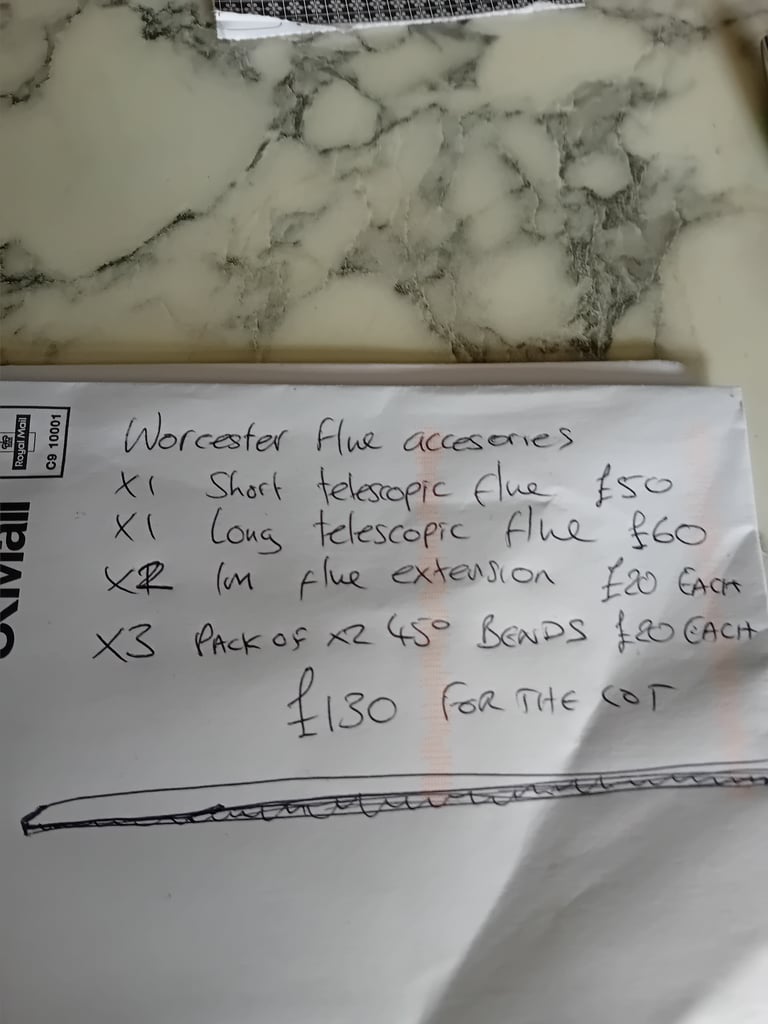 Worcester flue accesories
X1 Short telescopic flue £50
X1 Long telescopic flue £60
X2 1m flue extension £20 EACH
X3 PACK OF X2 45° BENDS £20 EACH
£130 FOR THE LOT
Royal Mail
C9 10001